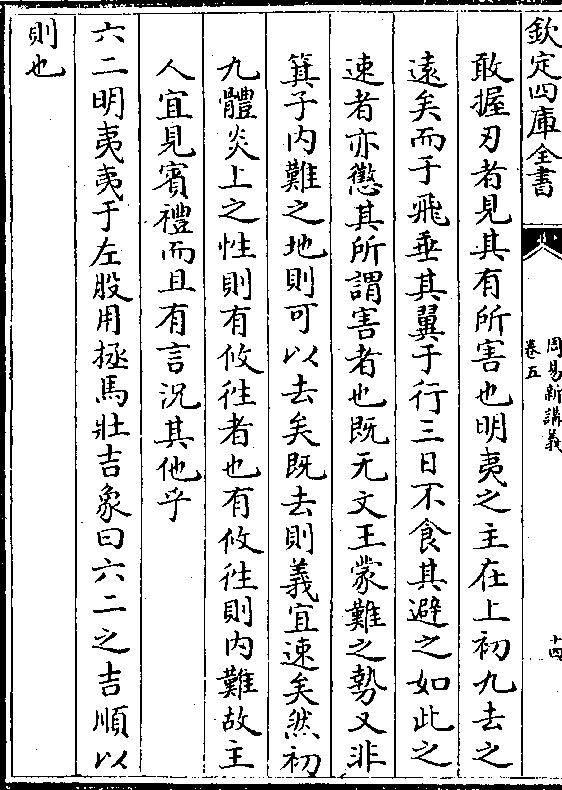 欽定四庫全書
周易新講義
卷五
十四
敢握刃者見其有所害也明夷之主在上初九去之
遠矣而于飛垂其翼于行三日不食其避之如此之
速者亦懲其所謂害者也既无文王蒙難之勢又非
箕子内難之地則可以去矣既去則義宜速矣然初
九體炎上之性則有攸徃者也有攸徃則内難故主
人宜見賓禮而且有言況其他乎
六二明夷夷于左股用拯馬壯吉象曰六二之吉順以
則也